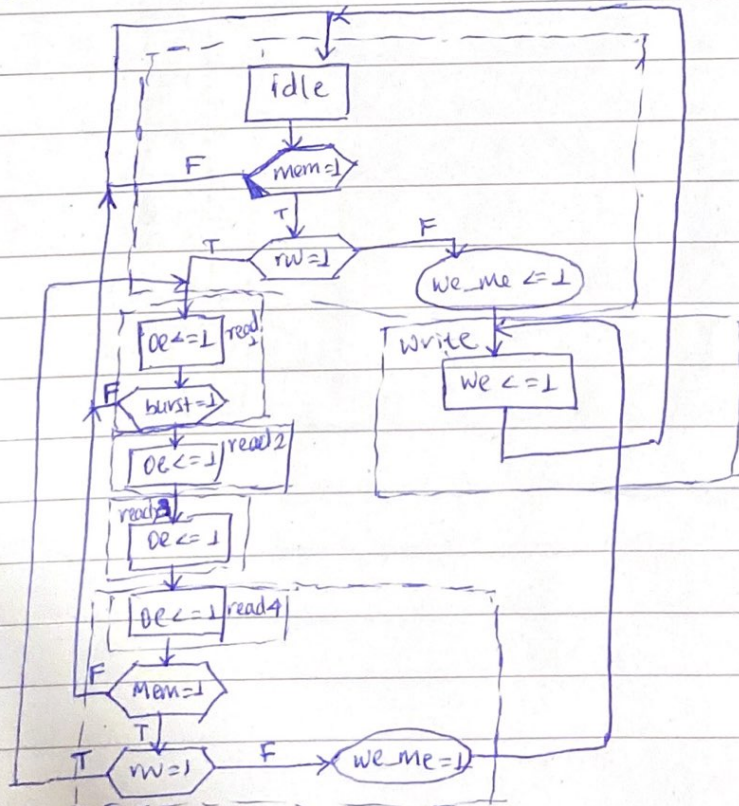 idle
F
mem=1
T
T
rw=1
F
we_me <=1
oe<=1
read1
write
F
burst=1
we <=1
oe<=1
read2
read3
oe<=1
oe<=1
read4
F
Mem=1
T
T
rw=1
F
we_me=1